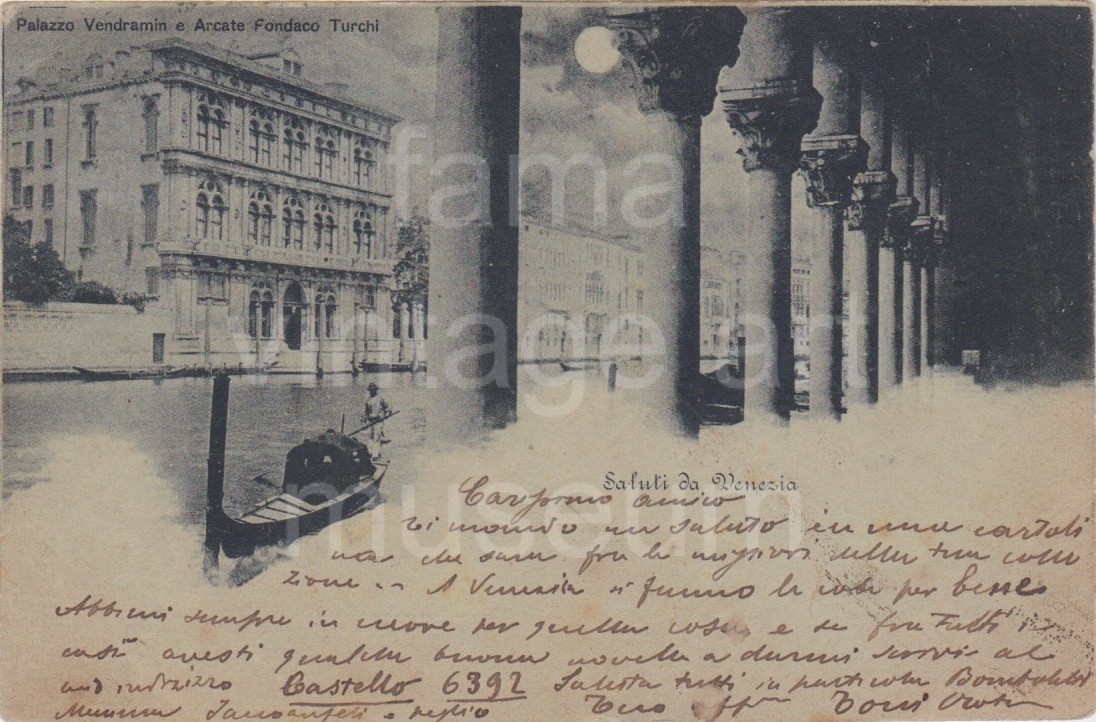 Palazzo Vendramin e Arcate Fondaco Turchi
fama
vintage art
museum
Saluti da Venezia
Carissimo amico
Ti mando un saluto in una cartoli
na che sara fra le migliori della tua colle
zione -- A Venezia si fanno le cose per bene
Abbimi sempre in cuore per quella cosa e se fra tutti i
casi avesti qualche buona novella a darmi scrivi al
mio indirizzo Castello 6392 Saluta tutti in particolar
Mamma e figlio Tuo aff Toni